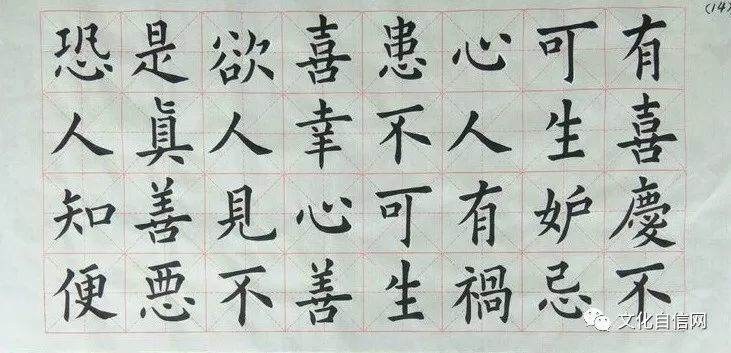 (14)
有喜慶不
可生妒忌
心人有禍
患不可生
喜幸心善
欲人見不
是眞善悪
恐人知便
文化自信网